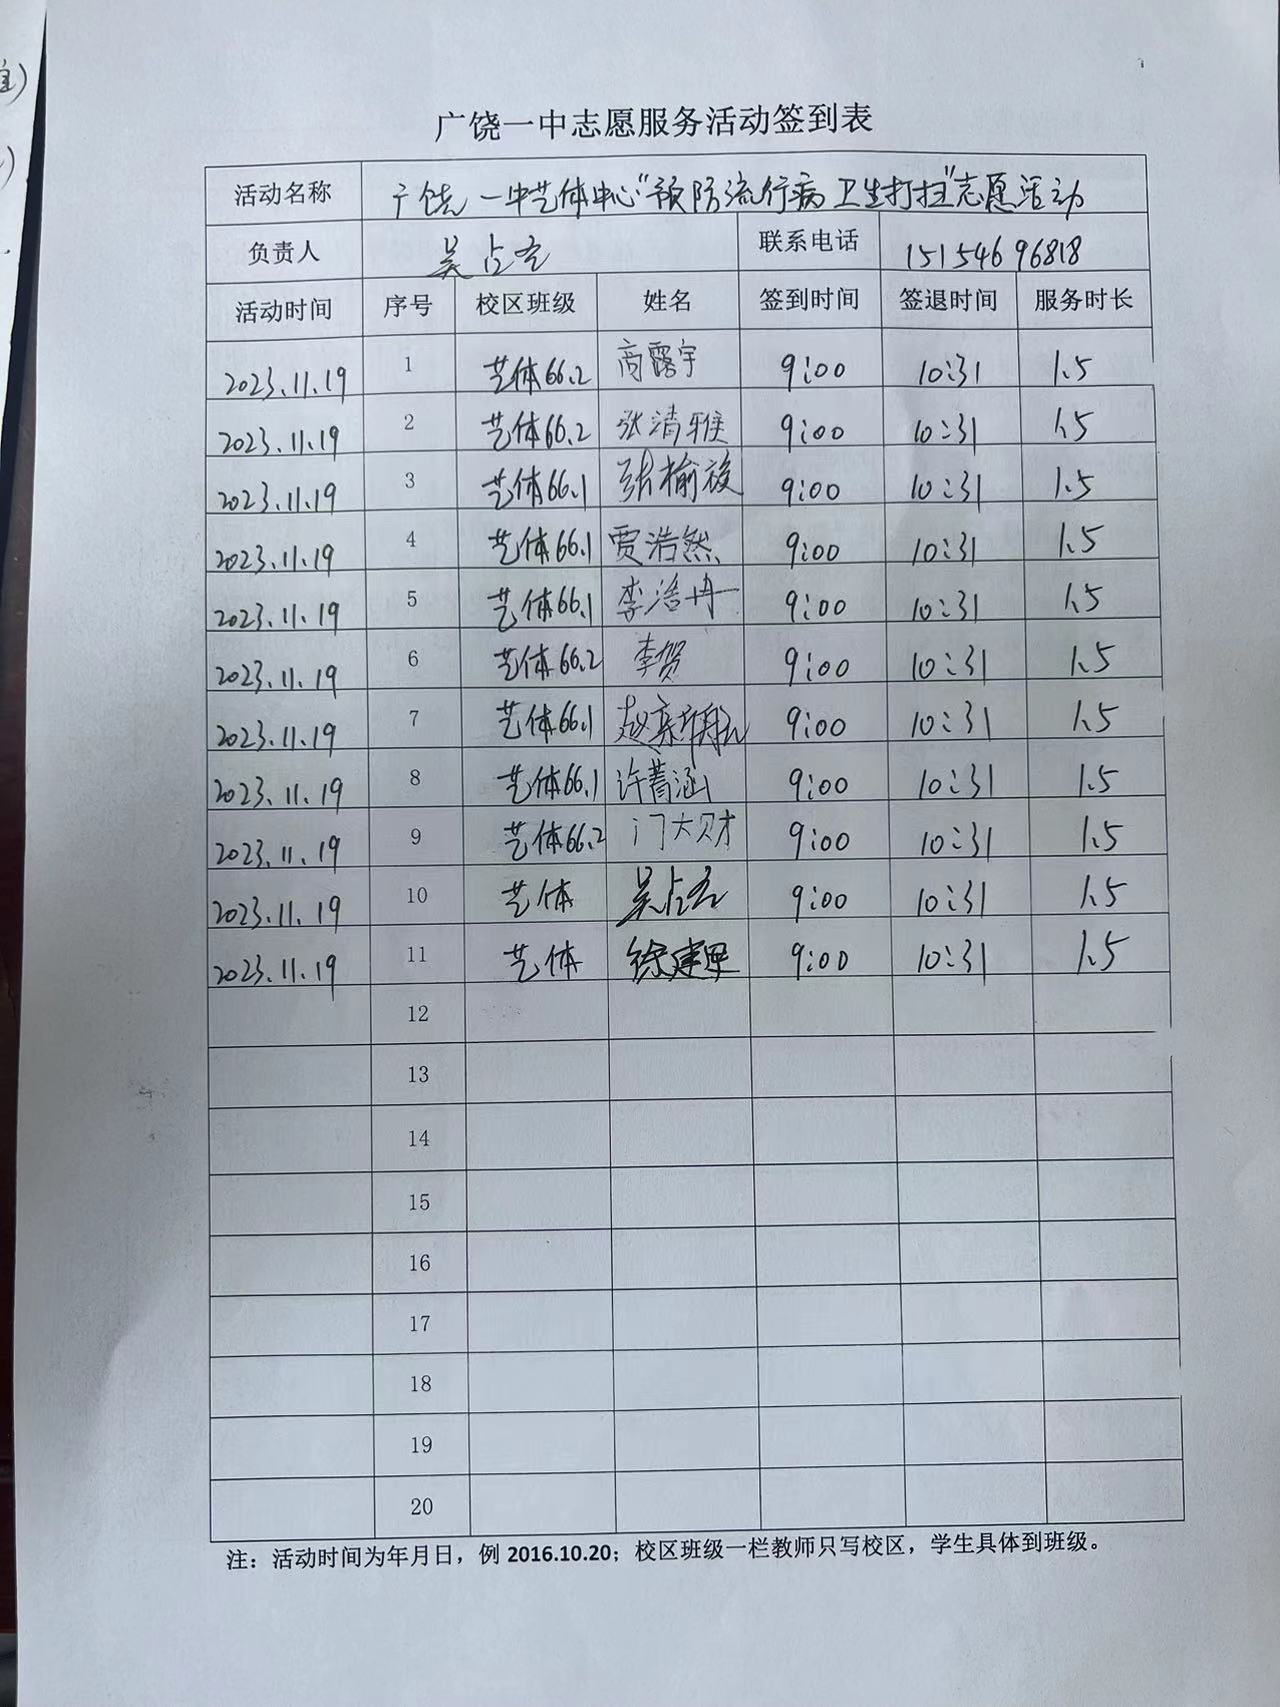 广饶一中志愿服务活动签到表
活动名称 广饶一中艺体中心"预防流行病卫生打扫"志愿活动
负责人 吴占 联系电话 15154696818
活动时间 序号 校区班级 姓名 签到时间 签退时间 服务时长
2023.11.19 1 艺体66.2 商露宇 9:00 10:31 1.5
2023.11.19 2 艺体66.2 张清雅 9:00 10:31 1.5
2023.11.19 3 艺体66.1 张榆 9:00 10:31 1.5
2023.11.19 4 艺体66.1 贾浩然 9:00 10:31 1.5
2023.11.19 5 艺体66.1 李浩冉 9:00 10:31 1.5
2023.11.19 6 艺体66.2 李贺 9:00 10:31 1.5
2023.11.19 7 艺体66.1 赵 9:00 10:31 1.5
2023.11.19 8 艺体66.1 许菁涵 9:00 10:31 1.5
2023.11.19 9 艺体66.2 门大财 9:00 10:31 1.5
2023.11.19 10 艺体 吴占 9:00 10:31 1.5
2023.11.19 11 艺体 徐建 9:00 10:31 1.5
12
13
14
15
16
17
18
19
20
注：活动时间为年月日，例 2016.10.20；校区班级一栏教师只写校区，学生具体到班级。